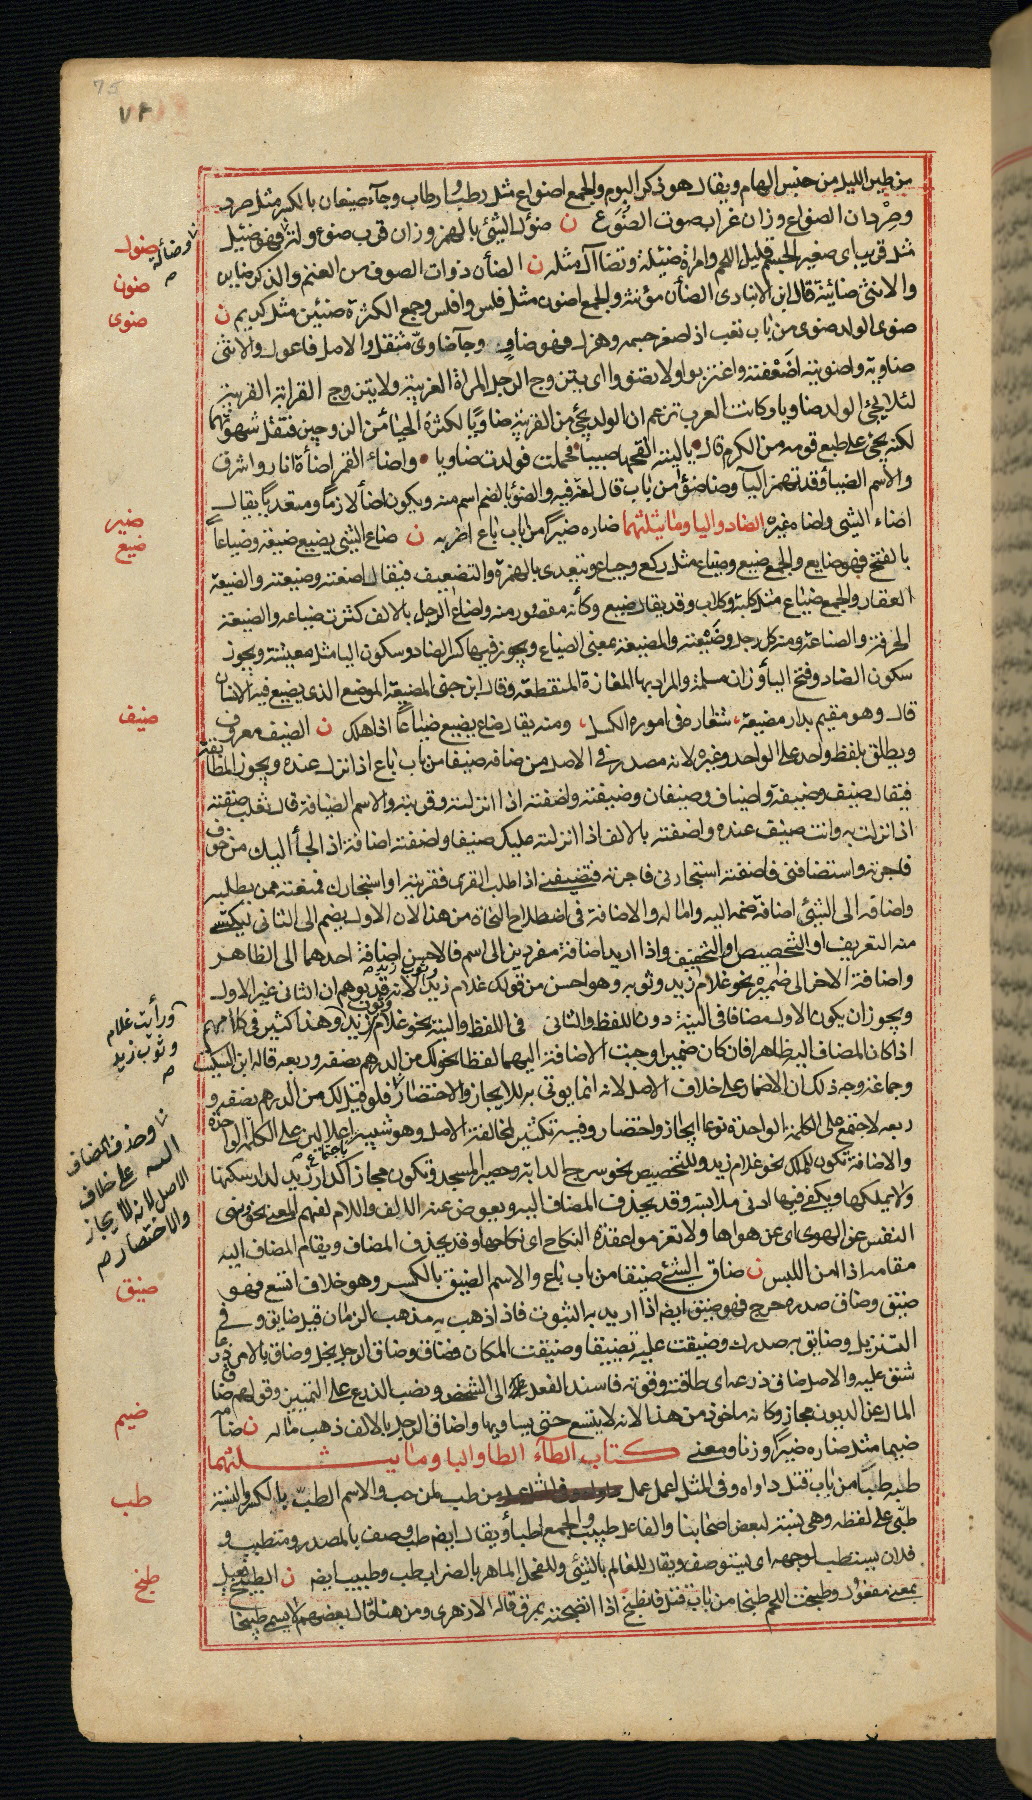 75
٧٤
من طير الليل من جنس الهام ويقال هو ذكر البوم والجمع اضواع مثل رطب وارطاب وجاء ضيعان بالكسر مثل صرد
وصردان الضواع وزان غراب صوت الضوع ن ضؤل الشيئ بالهمز وزان قرب صغر ولتر فهو ضئيل
مثل قريب اى صغير الجسم قليل اللحم وامراة ضئيلة وتضاآل مثله ن الضأن ذوات الصوف من الغنم والذكر ضاين
والانثى ضائنة قال ابن الانبارى الضأن مؤنثة والجمع اضون مثل فلس وافلس وجمع الكثرة ضئين مثل كريم ن
ضوى الولد ضوى من باب تعب اذا صغر جسمه وهزل فهو ضاو وجآ ضاوىّ مثقل والاصل فاعول والانثى
ضاوية واضويته اضعفته واغتربوا ولا تضووا اى يتزوج الرجل المراة الغريبة ولا يتزوج القرابة القريبة
لئلا يجئ الولد ضاويا وكانت العرب تزعم ان الولد يجئ من القريبة ضاويا لكثرة الحياء من الزوجين فتقل شهوتهما
لكنه يجئ على طبع قومه من الكرم قال ياليته القحها صبيا فحملت فولدت ضاويا واضاء القمر اضاءة انار واشرق
والاسم الضياء وقد تهمز اليآ وضاضوأ من باب قال لغة فيه والضوء بالضم اسم منه ويكون اضأ لازما ومتعديا يقال
اضاء الشيى واضاه غيره الضاد واليا وما يثلثهما ضاره ضيرا من باب باع اضر به ن ضاع الشيى يضيع ضيعة وضياعا
بالفتح فهو ضايع والجمع ضيع وضياع مثل ركع وجياع ويتعدى بالهمزة والتضعيف فيقال اضعته وضيعته والضيعة
العقار والجمع ضياع مثل كلبة وكلاب وقد يقال ضيع وكأنه مقصور منه واضاع الرجل بالالف كثرت ضياعه والضيعة
الحرفة والصناعة ومنه كل رجل وضيعته والمضيعة بمعنى الضياع ويجوز فيها كسر الضاد وسكون اليا مثل معيشة ويجوز
سكون الضاد وفتح اليا وزان مسلمة والمراد بها المفازة المنقطعة وقال ابن جنى المضيعة الموضع الذى يضيع فيه الانسان
قال وهو مقيم بدار مضيعة شعاره فى اموره الكسل ومنه يقال ضاع يضيع ضياعا اذا هلك ن الضيف معروف
ويطلق بلفظ واحد على الواحد وغيره لانه مصدر فى الاصل من ضافه ضيفا من باب باع اذا نزل عنده ويجوز المطابقة
فيقال ضيف وضيفة واضياف وضيفان وضيفته واضفته اذا انزلته وقريته والاسم الضيافة قال ثعلب ضفته
اذا نزلت به وانت ضيف عنده واضفته بالالف اذا انزلته عليك ضيفا واضفته اضافة اذا لجأ اليك من خوف
فاجرته واستضافنى فاضفته استجارنى فاجرته فتضيفنى اذا طلب القرى فقريته او استجارك فمنعته ممن يطلبه
واضافه الى الشيئ اضافة ضمه اليه واماله والاضافة فى اصطلاح النحاة من هذا لان الاول يضم الى الثانى ليكتسى
منه التعريف او التخصيص او التخفيف واذا اريد اضافة مفردين الى اسم فالاحسن اضافة احدهما الى الظاهر
واضافة الاخر الى ضميره نحو غلام زيد وثوبه وهو احسن من قولك غلام زيد وثوب زيد لانه قد يوهم ان الثانى غير الاول
ويجوز ان يكون الاول مضافا فى النية دون اللفظ والثانى فى اللفظ والنية نحو غلام وثوب زيد وهذا كثير فى كلامهم
اذا كان المضاف اليه ظاهرا فان كان ضميرا وجبت الاضافة اليهما لفظا نحو لك من الدرهم نصفه وربعه قاله ابن السكيت
وجماعة وجه ذلك ان الاضمار على خلاف الاصل لانه انما يوتى به للايجاز والاختصار فلو قيل لك من الدرهم نصف و
ربعه لاجتمع على الكلمة الواحدة نوعا ايجاز واختصار وفيه تكثير لمخالفة الاصل وهو شبيه باجتماع اعلالين على الكلمة الواحدة
والاضافة تكون للملك نحو غلام زيد وللتخصيص نحو سرج الدابة وحصير المسجد وتكون مجازا كدار زيد لدار سكنها
ولا يملكها ويكفى فيها ادنى ملابسة وقد يحذف المضاف اليه ويعوض عنه الالف واللام لفهم المعنى نحو ونهى
النفس عن الهوى اى عن هواها ولا تعزموا عقدة النكاح اى نكاحها وقد يحذف المضاف ويقام المضاف اليه
مقامه اذا امن اللبس ن ضاق الشئ ضيقا من باب باع والاسم الضيق بالكسر وهو خلاف اتسع فهو
ضيق وضاق صدره حرج فهو ضيق ايض اذا اريد به الثبوت فاذا ذهب به مذهب الزمان قيل ضايق وفى
التنزيل وضايق به صدرك وضيقت عليه تضييقا وضيقت المكان فضاق وضاق الرجل بخل وضاق بالامر ذرعا
شق عليه والاصل ضاق ذرعه اى طاقته وقوته فاسند الفعل الى الشخص ونصب الذرع على التمييز وقولهم ضاق
المال عن الديون مجاز وكانه ماخوذ من هذا لانه لا يتسع حتى يساويها واضاق الرجل بالالف ذهب ماله ن ضامه
ضيما مثل ضاره ضيرا وزنا ومعنى كتاب الطآء الطا والبا وما يثلثهما
طبه طبا من باب قتل داواه وفى المثل اعمل عمل من طب لمن حب والاسم الطب بالكسر والنسبة
طبى على لفظه وهى نسبة لبعض اصحابنا والفاعل طبيب والجمع اطباء ويقال ايض طب وصف بالمصدر ومتطبب و
فلان يستطب لوجعه اى يستوصف ويقال للعالم بالشيئ وللفحل الماهر بالضراب طب وطبيب ايض ن الطبيخ فعيل
بمعنى مفعول وطبخت اللحم طبخا من باب قتل فانطبخ اذا انضجته بمرق قاله الازهرى ومن هنا قال بعضهم لا يسمى طبيخا
وضألة
ضول
ضون
ضوى
ضير
ضيع
ضيف
ورأيت غلام
وثوب زيد
وحذف المضاف
اليه على خلاف
الاصل لانه للايجاز
والاختصار صح
ضيق
ضيم
طب
طبخ